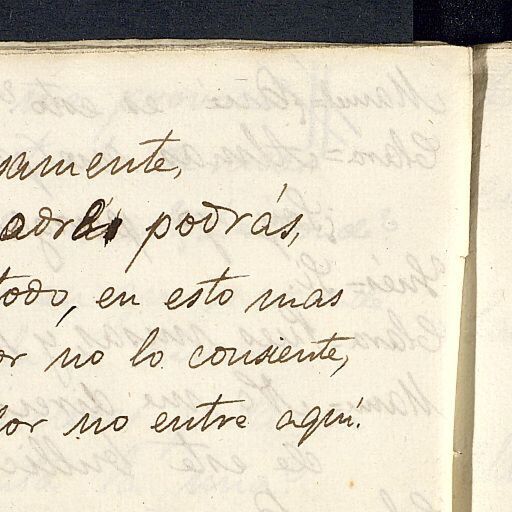 samente,
podrás,
todo, en esto mas
or no lo consiente,
lor no entre aquí.